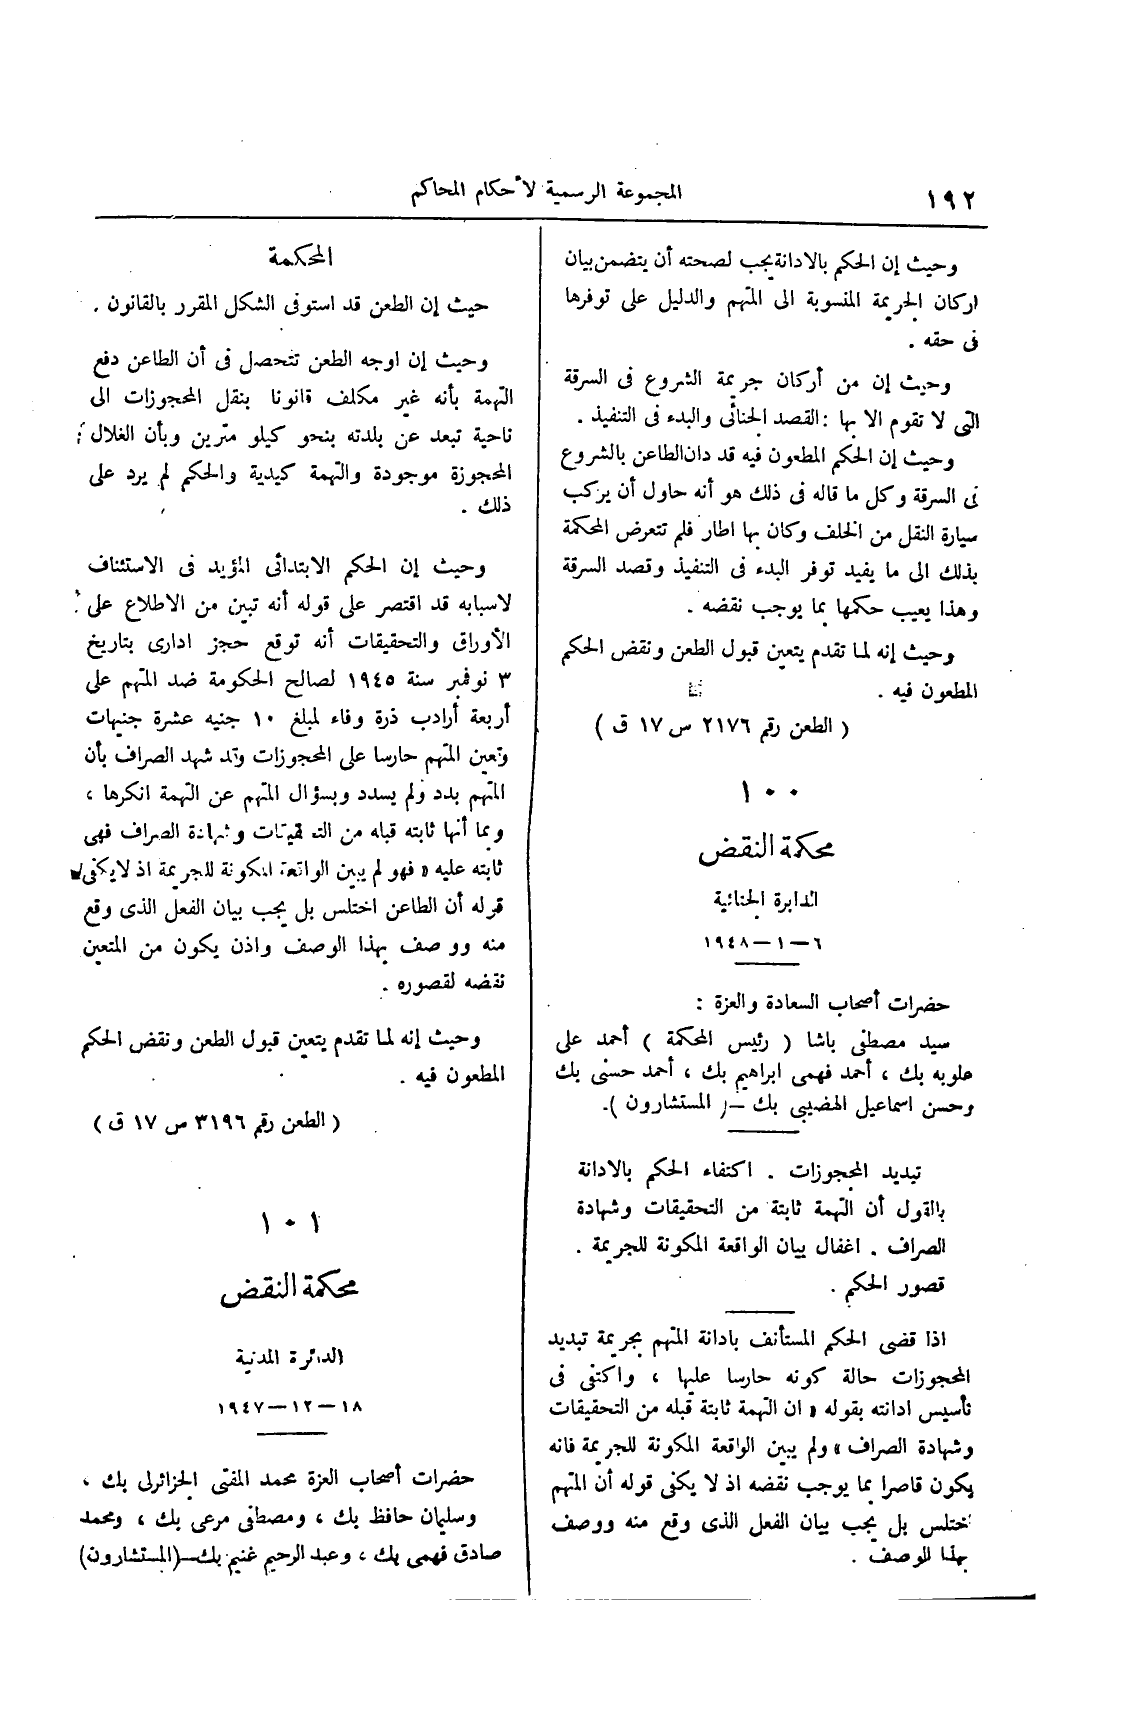 ١٩٢
المجموعة الرسمية لأحكام المحاكم
وحيث إن الحكم بالادانة يجب لصحته أن يتضمن بيان
اركان الجريمة المنسوبة الى المتهم والدليل على توفرها
فى حقه .
وحيث إن من أركان جريمة الشروع فى السرقة
التى لا تقوم الا بها : القصد الجنائى والبدء فى التنفيذ .
وحيث إن الحكم المطعون فيه قد دان الطاعن بالشروع
فى السرقة وكل ما قاله فى ذلك هو أنه حاول أن يركب
سيارة النقل من الخلف وكان بها اطار فلم تتعرض المحكمة
بذلك الى ما يفيد توفر البدء فى التنفيذ وقصد السرقة
وهذا يعيب حكمها بما يوجب نقضه .
وحيث إنه لما تقدم يتعين قبول الطعن ونقض الحكم
المطعون فيه .
( الطعن رقم ٢١٧٦ س ١٧ ق )
١٠٠
محكمة النقض
الدايرة الجنائية
٦ – ١ – ١٩٤٨
حضرات أصحاب السعادة والعزة :
سيد مصطفى باشا ( رئيس المحكمة ) أحمد على
علوبه بك ، أحمد فهمى ابراهيم بك ، أحمد حسنى بك
وحسن اسماعيل الهضيبى بك – ( المستشارون ).
تبديد المحجوزات . اكتفاء الحكم بالادانة
بالقول أن التهمة ثابتة من التحقيقات وشهادة
الصراف . اغفال بيان الواقعة المكونة للجريمة .
قصور الحكم .
اذا قضى الحكم المستأنف بادانة المتهم بجريمة تبديد
المحجوزات حالة كونه حارسا عليها ، واكتفى فى
تأسيس ادانته بقوله « ان التهمة ثابتة قبله من التحقيقات
وشهادة الصراف » ولم يبين الواقعة المكونة للجريمة فانه
يكون قاصرا بما يوجب نقضه اذ لا يكفى قوله أن المتهم
اختلس بل يجب بيان الفعل الذى وقع منه ووصف
بهذا الوصف .
المحكمة
حيث إن الطعن قد استوفى الشكل المقرر بالقانون .
وحيث إن اوجه الطعن تتحصل فى أن الطاعن دفع
التهمة بأنه غير مكلف قانونا بنقل المحجوزات الى
ناحية تبعد عن بلدته بنحو كيلو مترين وبأن الغلال
المحجوزة موجودة والتهمة كيدية والحكم لم يرد على
ذلك .
وحيث إن الحكم الابتدائى المؤيد فى الاستئناف
لاسبابه قد اقتصر على قوله أنه تبين من الاطلاع على
الأوراق والتحقيقات أنه توقع حجز ادارى بتاريخ
٣ نوفمبر سنة ١٩٤٥ لصالح الحكومة ضد المتهم على
أربعة أرادب ذرة وفاء لمبلغ ١٠ جنيه عشرة جنيهات
وتعين المتهم حارسا على المحجوزات وقد شهد الصراف بأن
المتهم بدد ولم يسدد وبسؤال المتهم عن التهمة انكرها ،
وبما أنها ثابته قبله من التحقيقات وشهادة الصراف فهى
ثابته عليه « فهو لم يبين الواقعة المكونة للجريمة اذ لا يكفى
قوله أن الطاعن اختلس بل يجب بيان الفعل الذى وقع
منه ووصف بهذا الوصف واذن يكون من المتعين
نقضه لقصوره .
وحيث إنه لما تقدم يتعين قبول الطعن ونقض الحكم
المطعون فيه .
( الطعن رقم ٣١٩٦ س ١٧ ق )
١٠١
محكمة النقض
الدائرة المدنية
١٨ – ١٢ – ١٩٤٧
حضرات أصحاب العزة محمد المفتى الجزائرلى بك ،
وسليمان حافظ بك ، ومصطفى مرعى بك ، ومحمد
صادق فهمى بك ، وعبد الرحيم غنيم بك – (المستشارون)